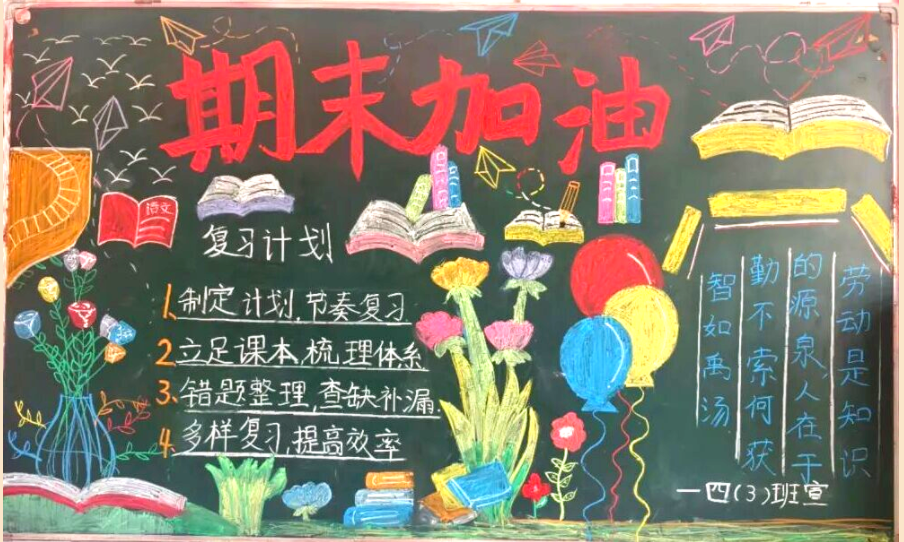 期末加油
语文
复习计划
1.制定计划,节奏复习
2.立足课本,梳理体系
3.错题整理,查缺补漏.
4.多样复习,提高效率
劳动是知识
的源泉人在于
勤不索何获
智如禹汤
一四(3)班宣